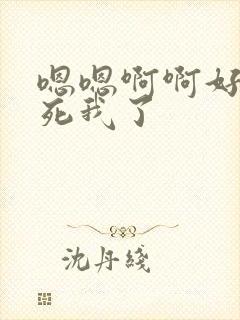 嗯嗯啊啊好
死我了
沈丹綫